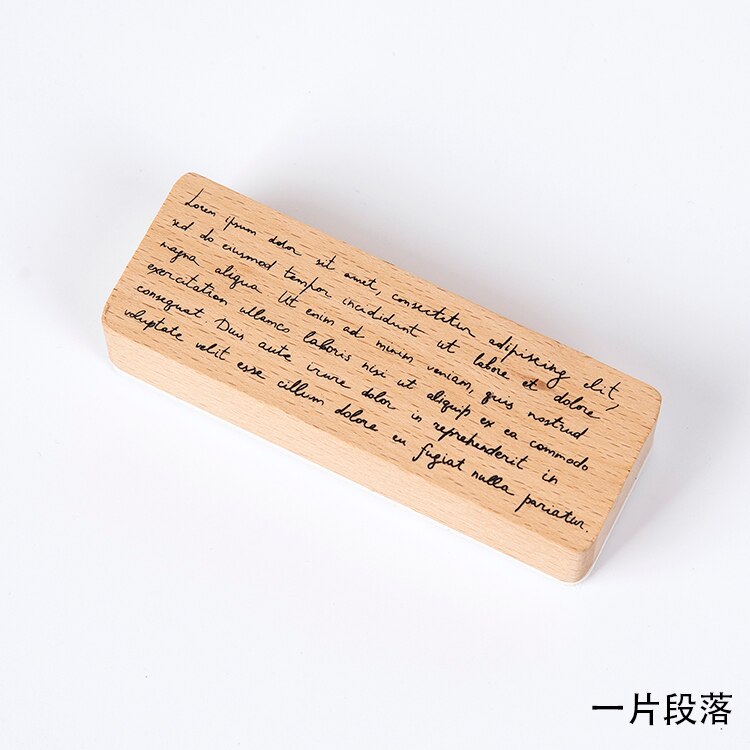 Lorem ipsum dolor sit amet, consectetur adipiscing elit,
sed do eiusmod tempor incididunt ut labore et dolore
magna aliqua. Ut enim ad minim veniam, quis nostrud
exercitation ullamco laboris nisi ut aliquip ex ea commodo
consequat. Duis aute irure dolor in reprehenderit in
voluptate velit esse cillum dolore eu fugiat nulla pariatur.
一片段落